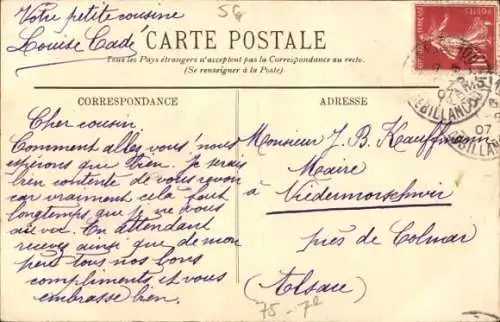 Votre petite cousine
Louise Cadé
56
CARTE POSTALE
Tous les Pays étrangers n'acceptent pas la Correspondance au recto.
(Se renseigner à la Poste).
POSTES
BILLANCOURT
07
CORRESPONDANCE
ADRESSE
Cher cousin
Comment allez vous? nous
espérons que bien. Je serais
bien contente de vous revoir
car vraiment cela fait
longtemps que je ne vous
ai vu. En attendant
recevez ainsi que de mon
petit tous nos bons
compliments, et vous
embrasse bien.
Monsieur J. B. Kauffmann
Maire
à Niedermorschwir
près de Colmar
(Alsace)
75-